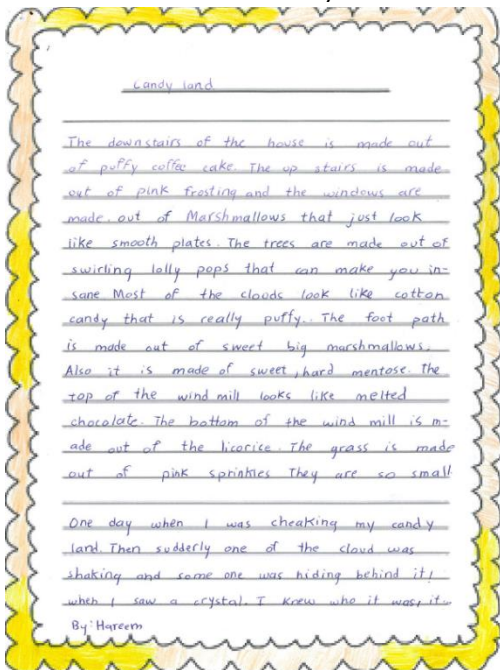 Candy land
The downstairs of the house is made out
of puffy coffee cake. The up stairs is made
out of pink frosting and the windows are
made. out of Marshmallows that just look
like smooth plates. The trees are made out of
swirling lolly pops that can make you in-
sane Most of the clouds look like cotton
candy that is really puffy.. The foot path
is made out of sweet big marshmallows.
Also it is made of sweet, hard mentose. The
top of the wind mill looks like melted
chocolate. The bottom of the wind mill is m-
ade out of the licorice. The grass is made
out of pink sprinkles They are so small
One day when I was cheaking my candy
land. Then sudderly one of the cloud was
shaking and some one was hiding behind it!
when I saw a crystal. I knew who it was, it...
By: Hareem